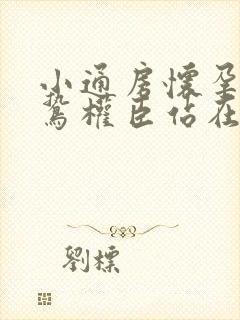 小通房懷孕
鷙權臣佔在
劉標